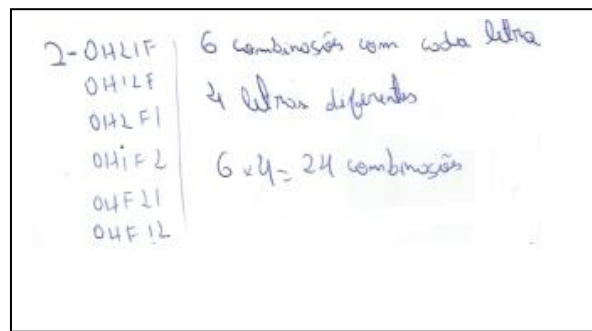 2-OHLIF
OHILF
OHLFI
OHiFL
OHFLI
OHFIL
6 combinações com cada letra
4 letras diferentes
6x4= 24 combinações